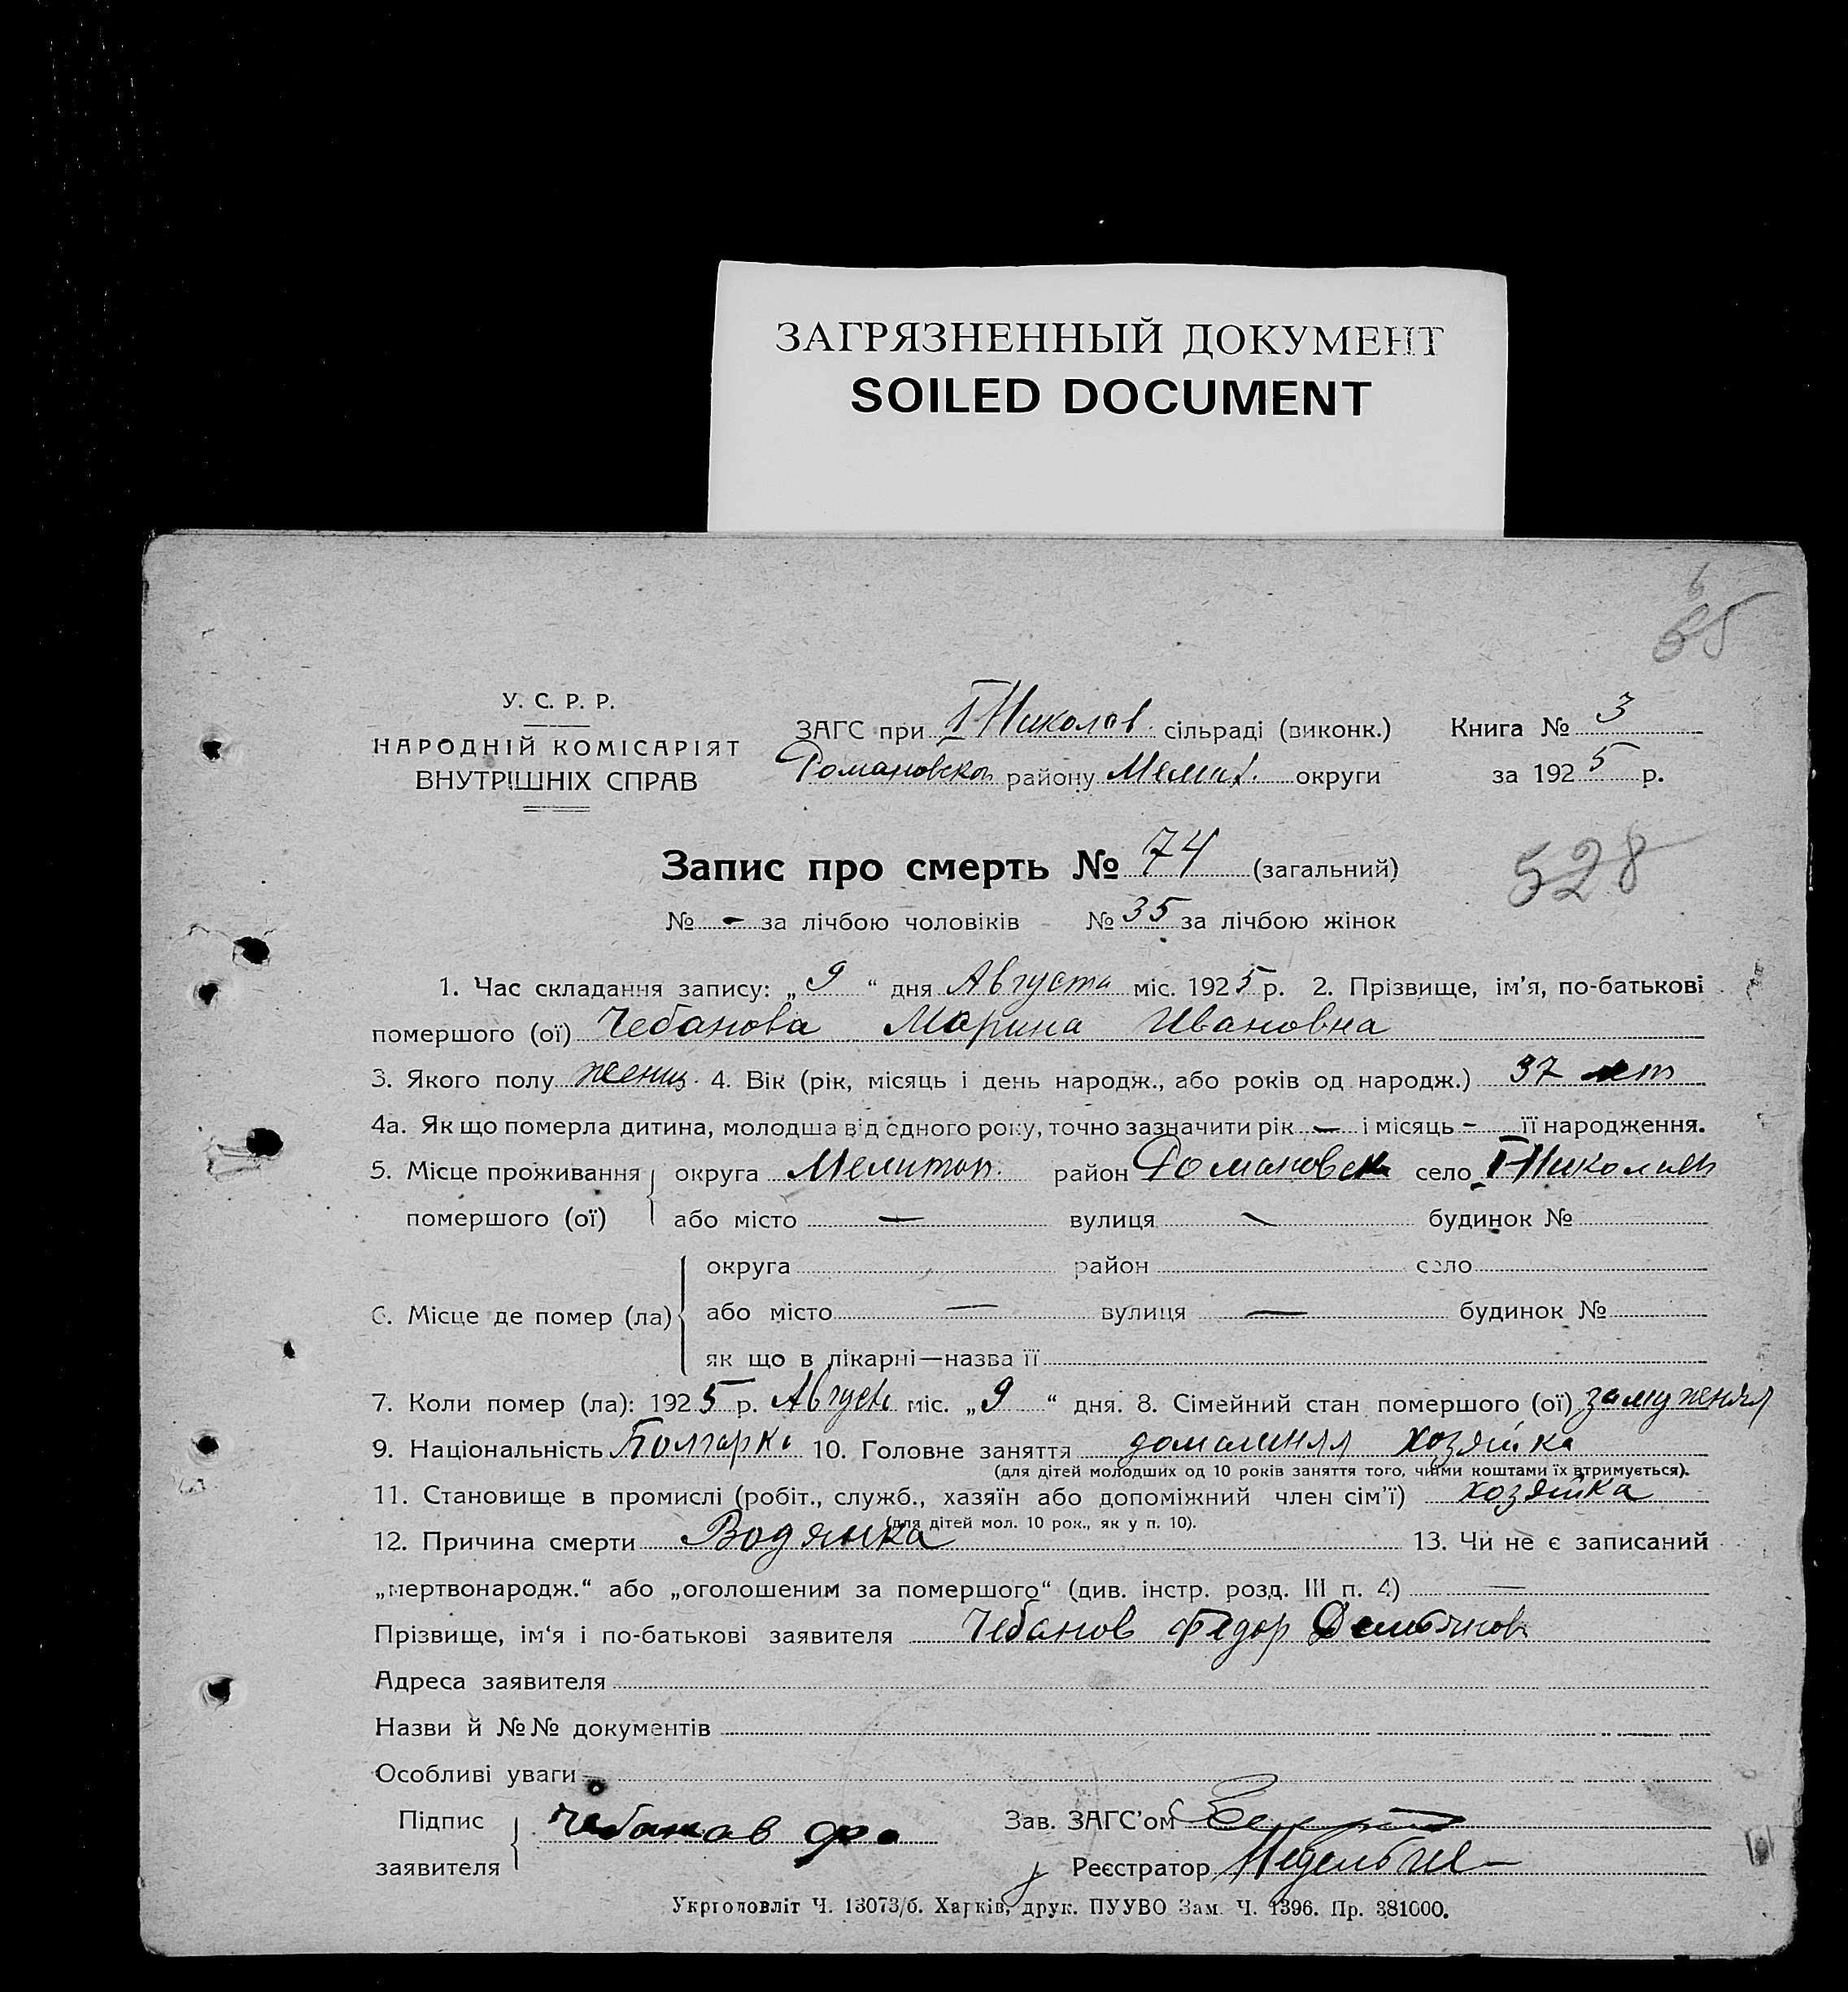 ЗАГРЯЗНЕННЫЙ ДОКУМЕНТ
SOILED DOCUMENT
У. С. Р. Р.
НАРОДНІЙ КОМІСАРІЯТ
ВНУТРІШНІХ СПРАВ
ЗАГС при І Николов. сільраді (виконк.) Книга № 3
Романовском району Мелит. округи за 1925 р.
528
Запис про смерть № 74 (загальний)
№ - за лічбою чоловіків № 35 за лічбою жінок
1. Час складання запису: „9“ дня Августа міс. 1925 р. 2. Прізвище, ім'я, по-батькові
помершого (ої) Чебанова Марина Ивановна
3. Якого полу женщ. 4. Вік (рік, місяць і день народж., або років од народж.) 37 лет
4а. Як що померла дитина, молодша від єдного року, точно зазначити рік — і місяць - її народження.
5. Місце проживання округа Мелитоп. район Романовск село І-Николаев
помершого (ої) або місто — вулиця — будинок №
округа район село
6. Місце де помер (ла) або місто — вулиця — будинок №
як що в лікарні—назва її
7. Коли помер (ла): 1925 р. Август міс. „9“ дня. 8. Сімейний стан помершого (ої) замужняя
9. Національність Болгарка 10. Головне заняття домашняя хозяйка
(для дітей молодших од 10 років заняття того, чиїми коштами їх втримується).
11. Становище в промислі (робіт., служб., хазяїн або допоміжний член сім'ї) хозяйка
(для дітей мол. 10 рок., як у п. 10).
12. Причина смерти Водянка 13. Чи не є записаний
„мертвонародж.“ або „оголошеним за помершого“ (див. інстр. розд. III п. 4) —
Прізвище, ім'я і по-батькові заявителя Чебанов Федор Демьянов
Адреса заявителя
Назви й №№ документів
Особливі уваги
Підпис заявителя Чебанов Зав. ЗАГС'ом
Реєстратор
Укрголовліт Ч. 13073/б. Харків, друк. ПУУВО Зам. Ч. 1396. Пр. 381000.